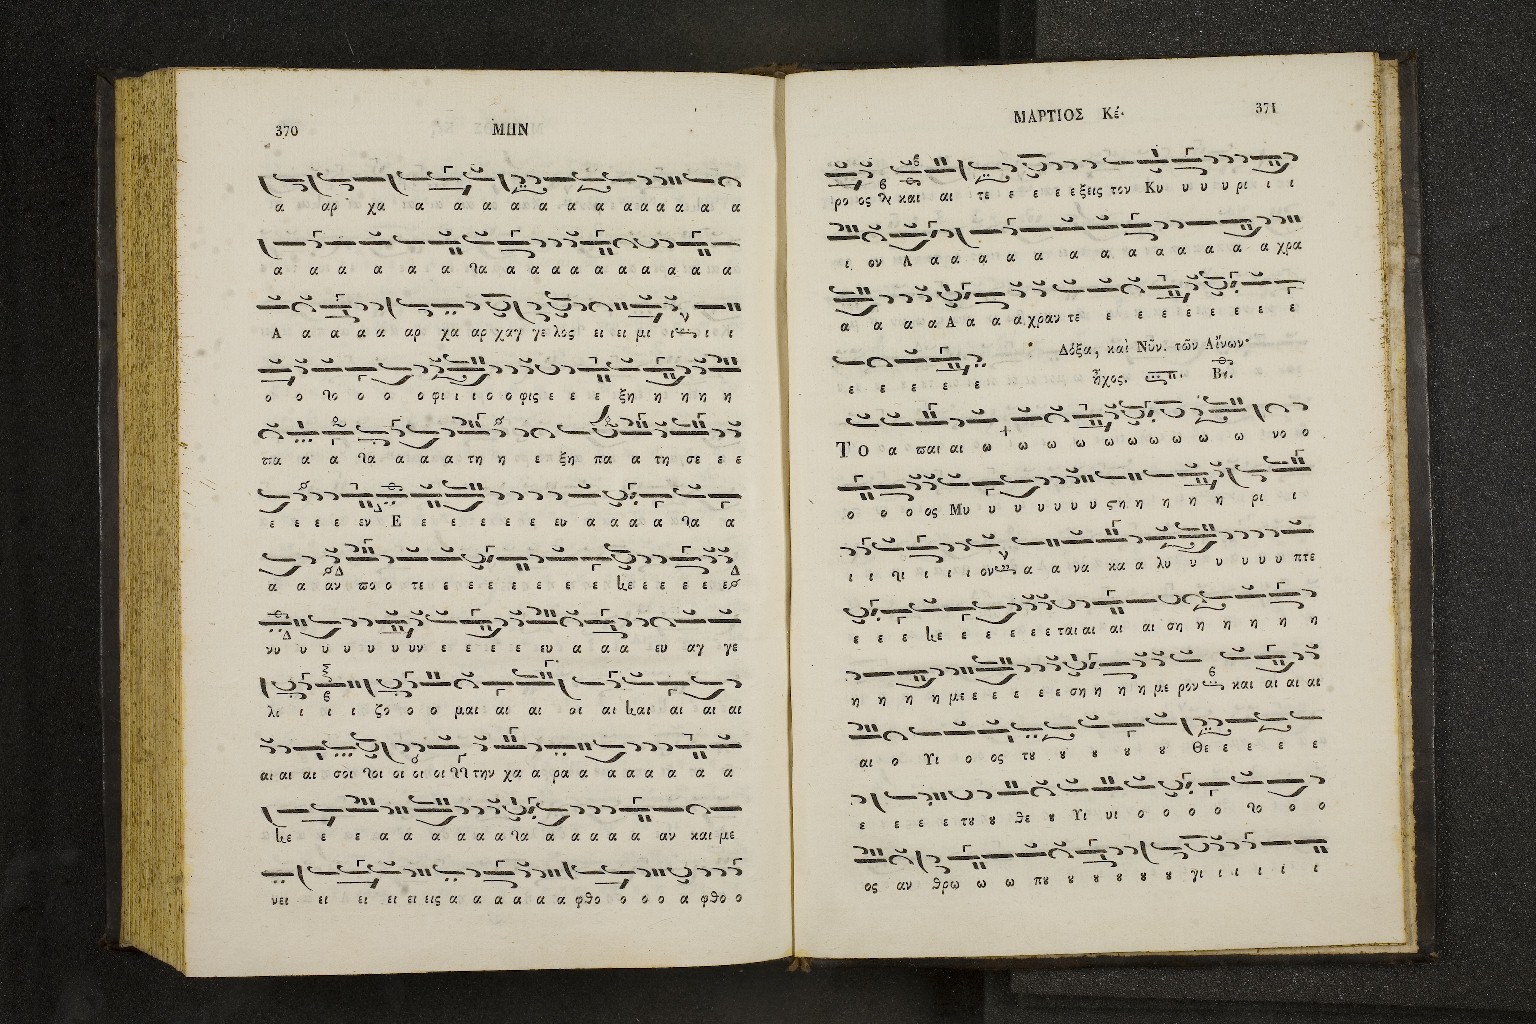 370
ΜΗΝ
α αρ χα α α α α α α α α α α α α
α α α α α α λα α α α α α α α α α α
Α α α α α αρ χα αρ χαγ γε λος ει ει μι ι ι ι
ο ο λο ο ο ο φι ι ι ο ο φις ε ε ε ξη η η η η
πα α α λα α α α τη η ε ξη πα α τη σε ε ε
ε ε ε ε εν Ε ε ε ε ε ε ε ευ α α α α λα α
α α αν πο ο τε ε ε ε ε ε ε ε ε ε ε ε ε ε
νυ υ υ υ υ υ υν ε ε ε ε ευ α α α ευ αγ γε
λι ι ι ι ζο ο ο μαι αι αι οι αι αι αι αι αι
αι αι αι σοι οι οι οι οι την χα α ρα α α α α α α α
ε ε ε α α α α α α λα α α α α α αν και με
νει ει ει ει ει εις α α α α α α φθο ο ο ο α φθο ο
ΜΑΡΤΙΟΣ Κέ.
371
ρο ος και αι τε ε ε ε ε ξεις τον Κυ υ υ υ ρι ι ι
ι ον Α α α α α α α α α α α α α χρα
α α α α Α α α α χραν τε ε ε ε ε ε ε ε
Δόξα, καὶ Νῦν. τῶν Αἴνων·
ε ε ε ε ε ε
ἦχος. Βε.
Το α παι αι ω ω ω ω ω ω ω ω ω ω νο ο
ο ο ο ος Μυ υ υ υ υ υ υ ςη η η η η ρι ι
ι ι λι ι ι ι ον α α να κα α λυ υ υ υ υ υ πτε
ε ε ε ε ε ε ε ε ε ται αι αι αι ση η η η η η
η η η η με ε ε ε ε ε ση η η η με ρον και αι αι αι
αι ο Υι ο ος τȣ ȣ ȣ ȣ ȣ ȣ Θε ε ε ε ε
ε ε ε ε τȣ ȣ θε ȣ Υι υι ο ο ο ο λο ο ο
ος αν θρω ω ω πȣ ȣ ȣ ȣ ȣ ȣ ȣ γι ι ι ι ι ι